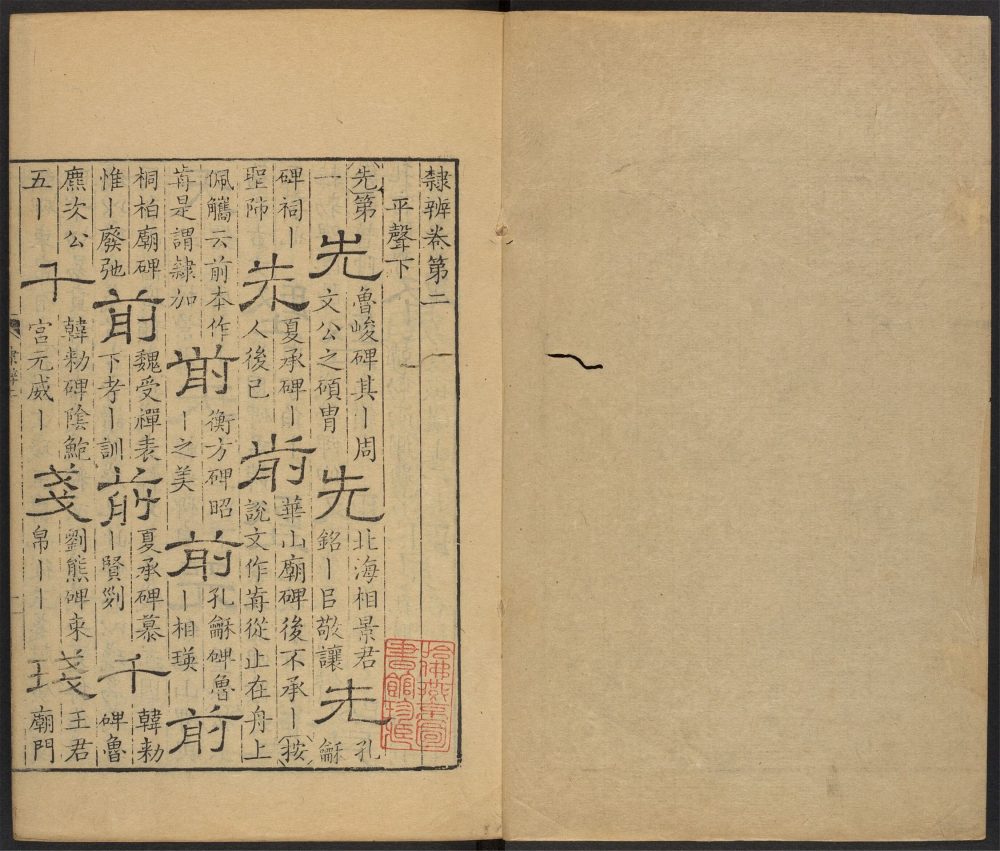 隸辨卷第二
平聲下
先第一先魯峻碑其丨周文公之碩胄先北海相景君銘丨㠯敬讓先孔龢
碑祠丨聖師先夏承碑丨人後已前華山廟碑後不承丨按說文作歬從止在舟上
佩觿云前本作歬是謂隸加前衡方碑昭丨之美前孔龢碑魯丨相瑛前
桐柏廟碑惟丨廢弛前魏受禪表下孝丨訓前夏承碑慕丨賢列千韓勑碑魯
麃次公五丨千韓勑碑陰鮑宮元威丨戔劉熊碑東帛丨丨戔王君廟門
哈佛燕京圖
書館珍藏